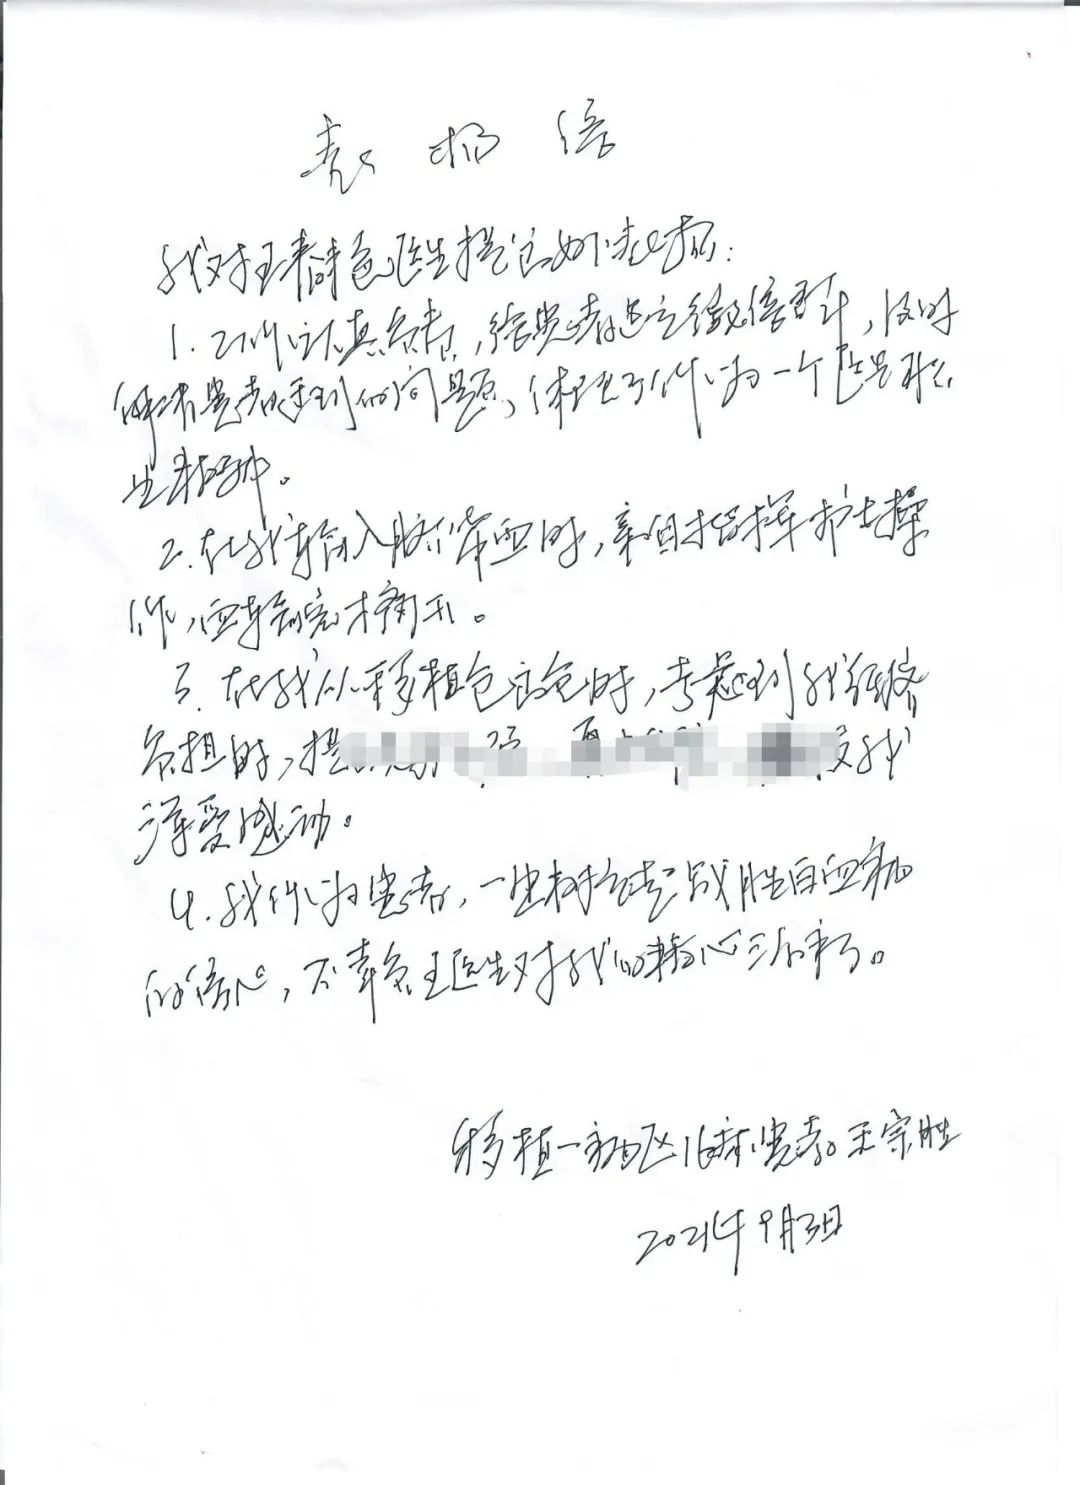 表扬信
我对王春色医生提出如下表扬:
1. 工作认真负责, 给患者足够信心, 及时
解决患者遇到的问题, 体现了作为一个医务
生精神。
2. 在我输入脐带血时, 亲自指挥护士操
作, 血输完才离开。
3. 在我从移植仓出仓时, 考虑到我经济
负担时, 提 使我
深受感动。
4. 我作为患者, 一定树立起战胜白血病
的信心, 不辜负王医生对我的精心治疗。
移植一病区16床患者王宗胜
2021年9月3日